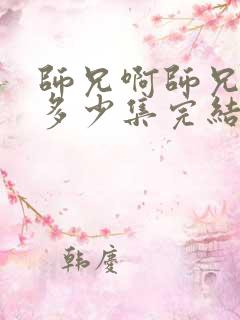 師兄啊師兄
多少集完結
韩慶